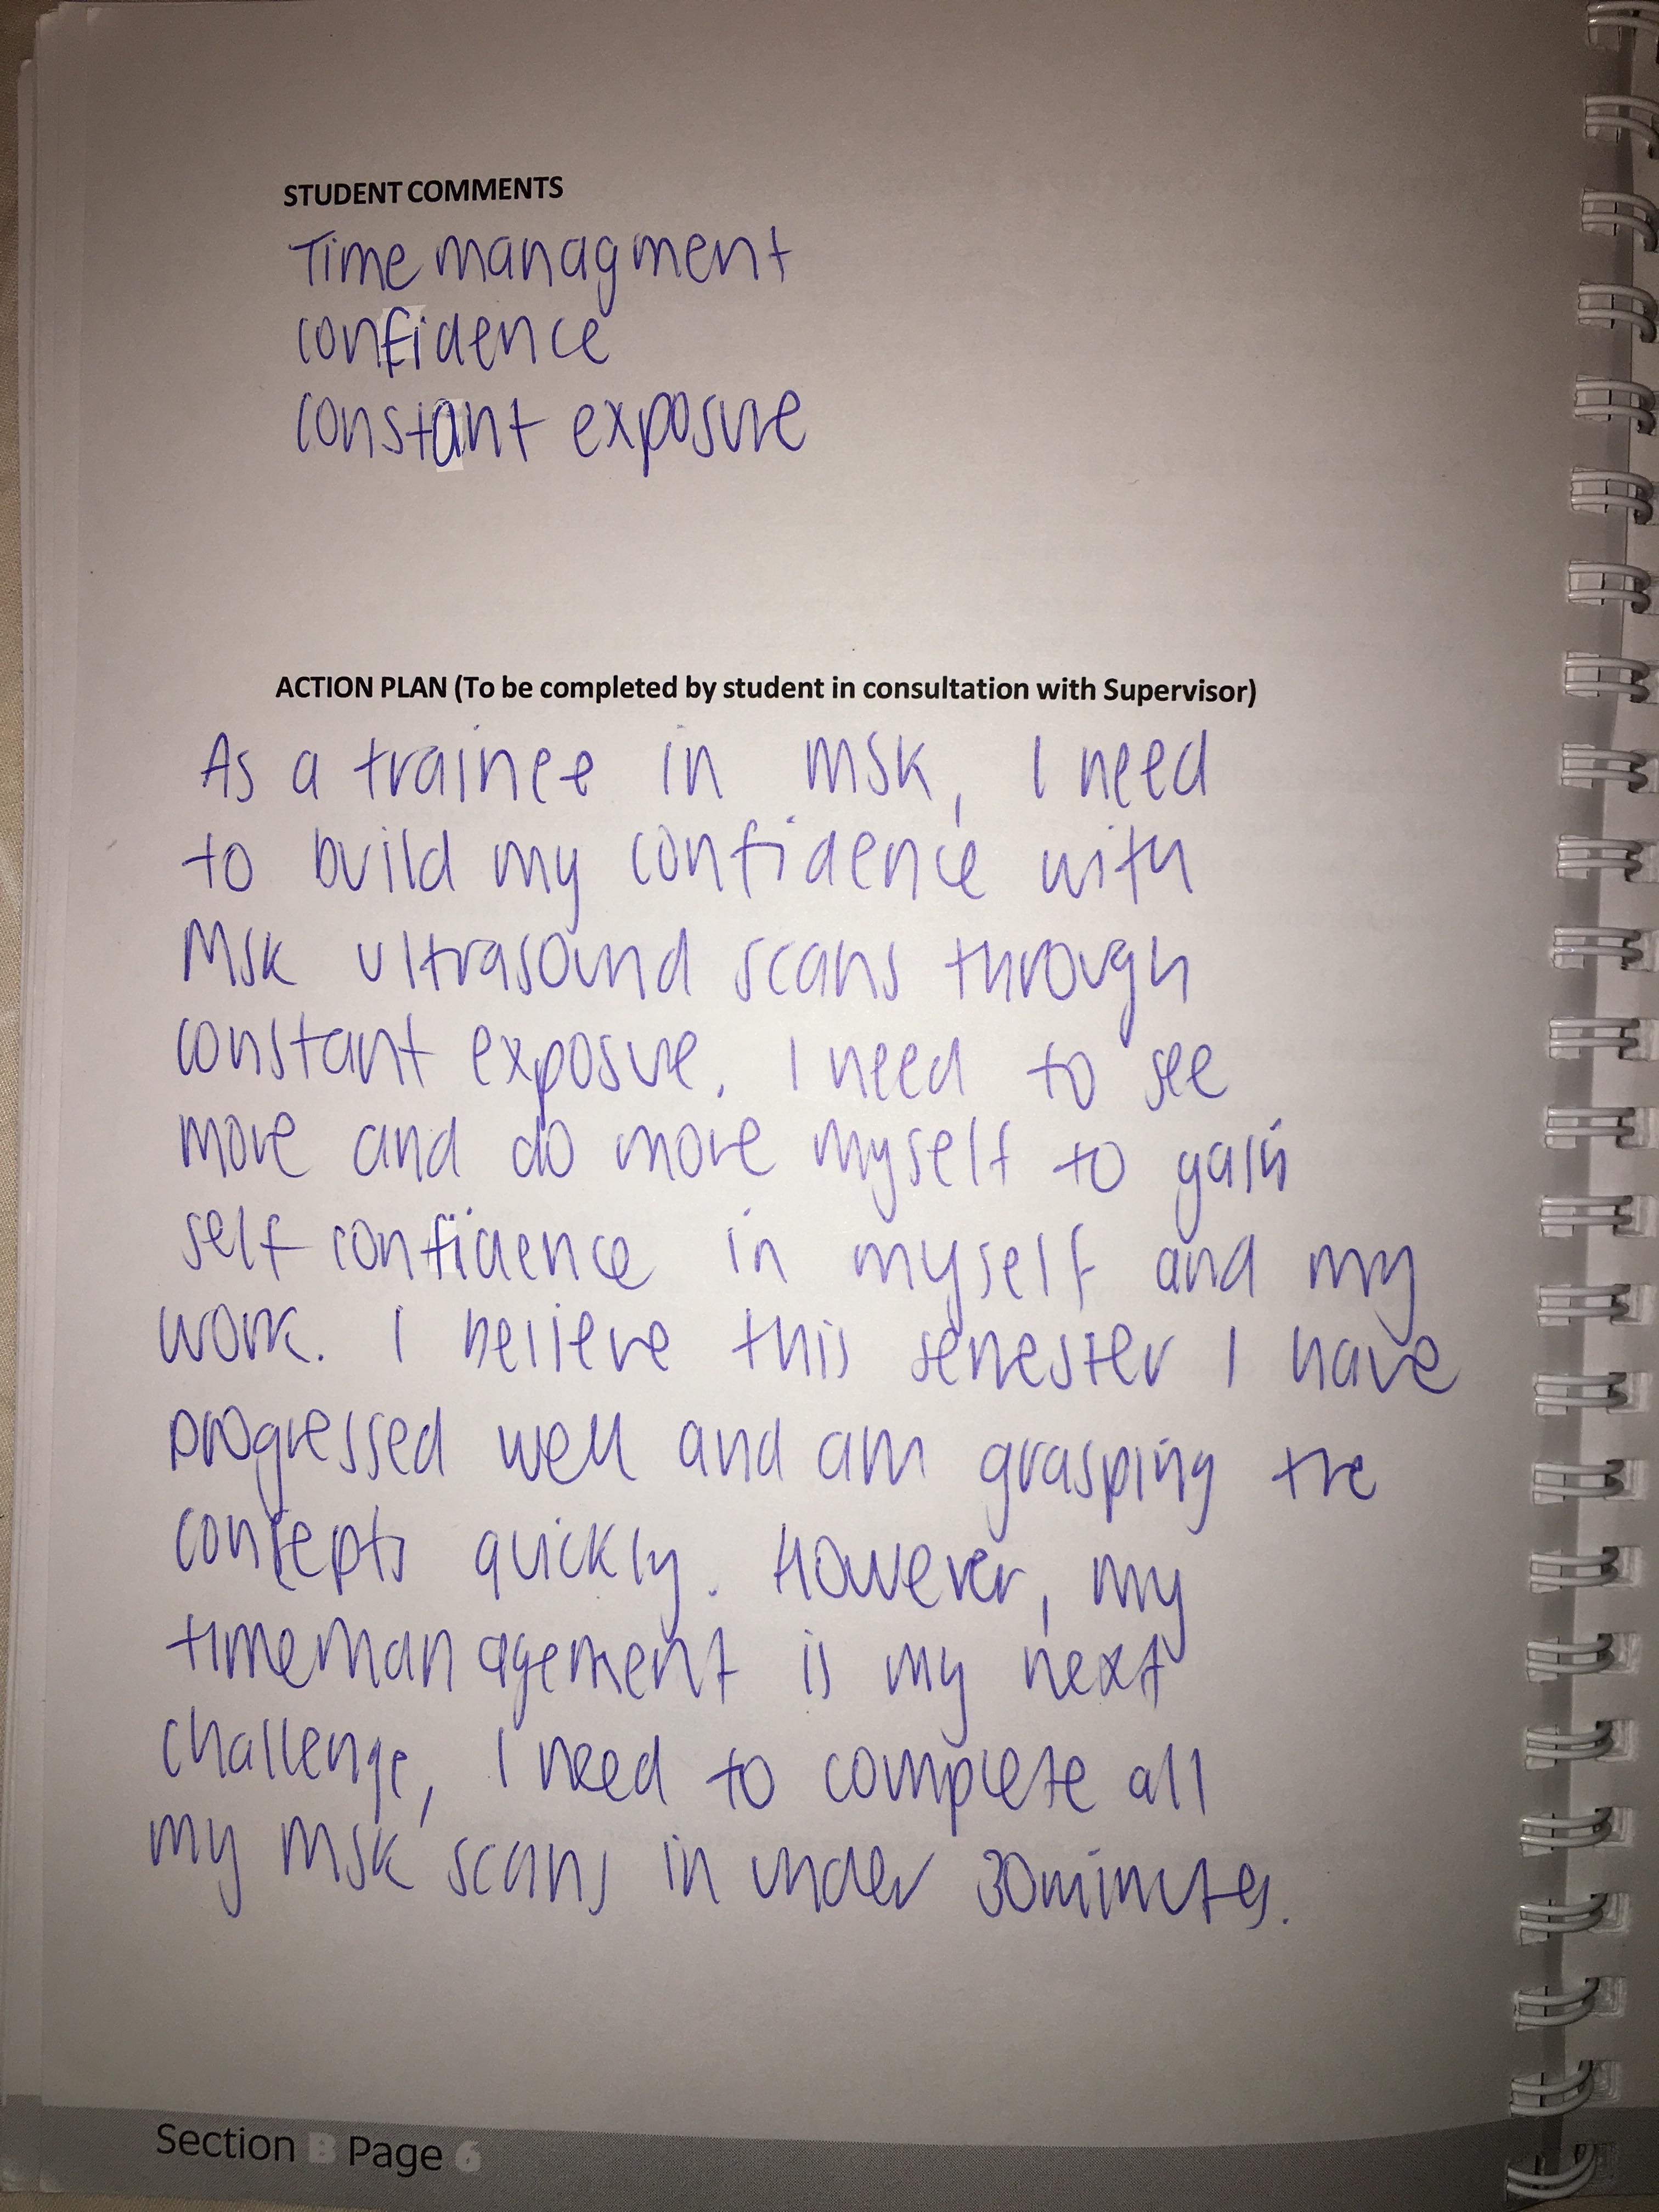 STUDENT COMMENTS
Time managment
confidence
constant exposure
ACTION PLAN (To be completed by student in consultation with Supervisor)
As a trainee in MSK, I need
to build my confidence with
MSK ultrasound scans through
constant exposure. I need to see
more and do more myself to gain
self confidence in myself and my
work. I believe this semester I have
progressed well and am grasping the
concepts quickly. However, my
time management is my next
challenge, I need to complete all
my MSK scans in under 30minutes.
Section B Page 6